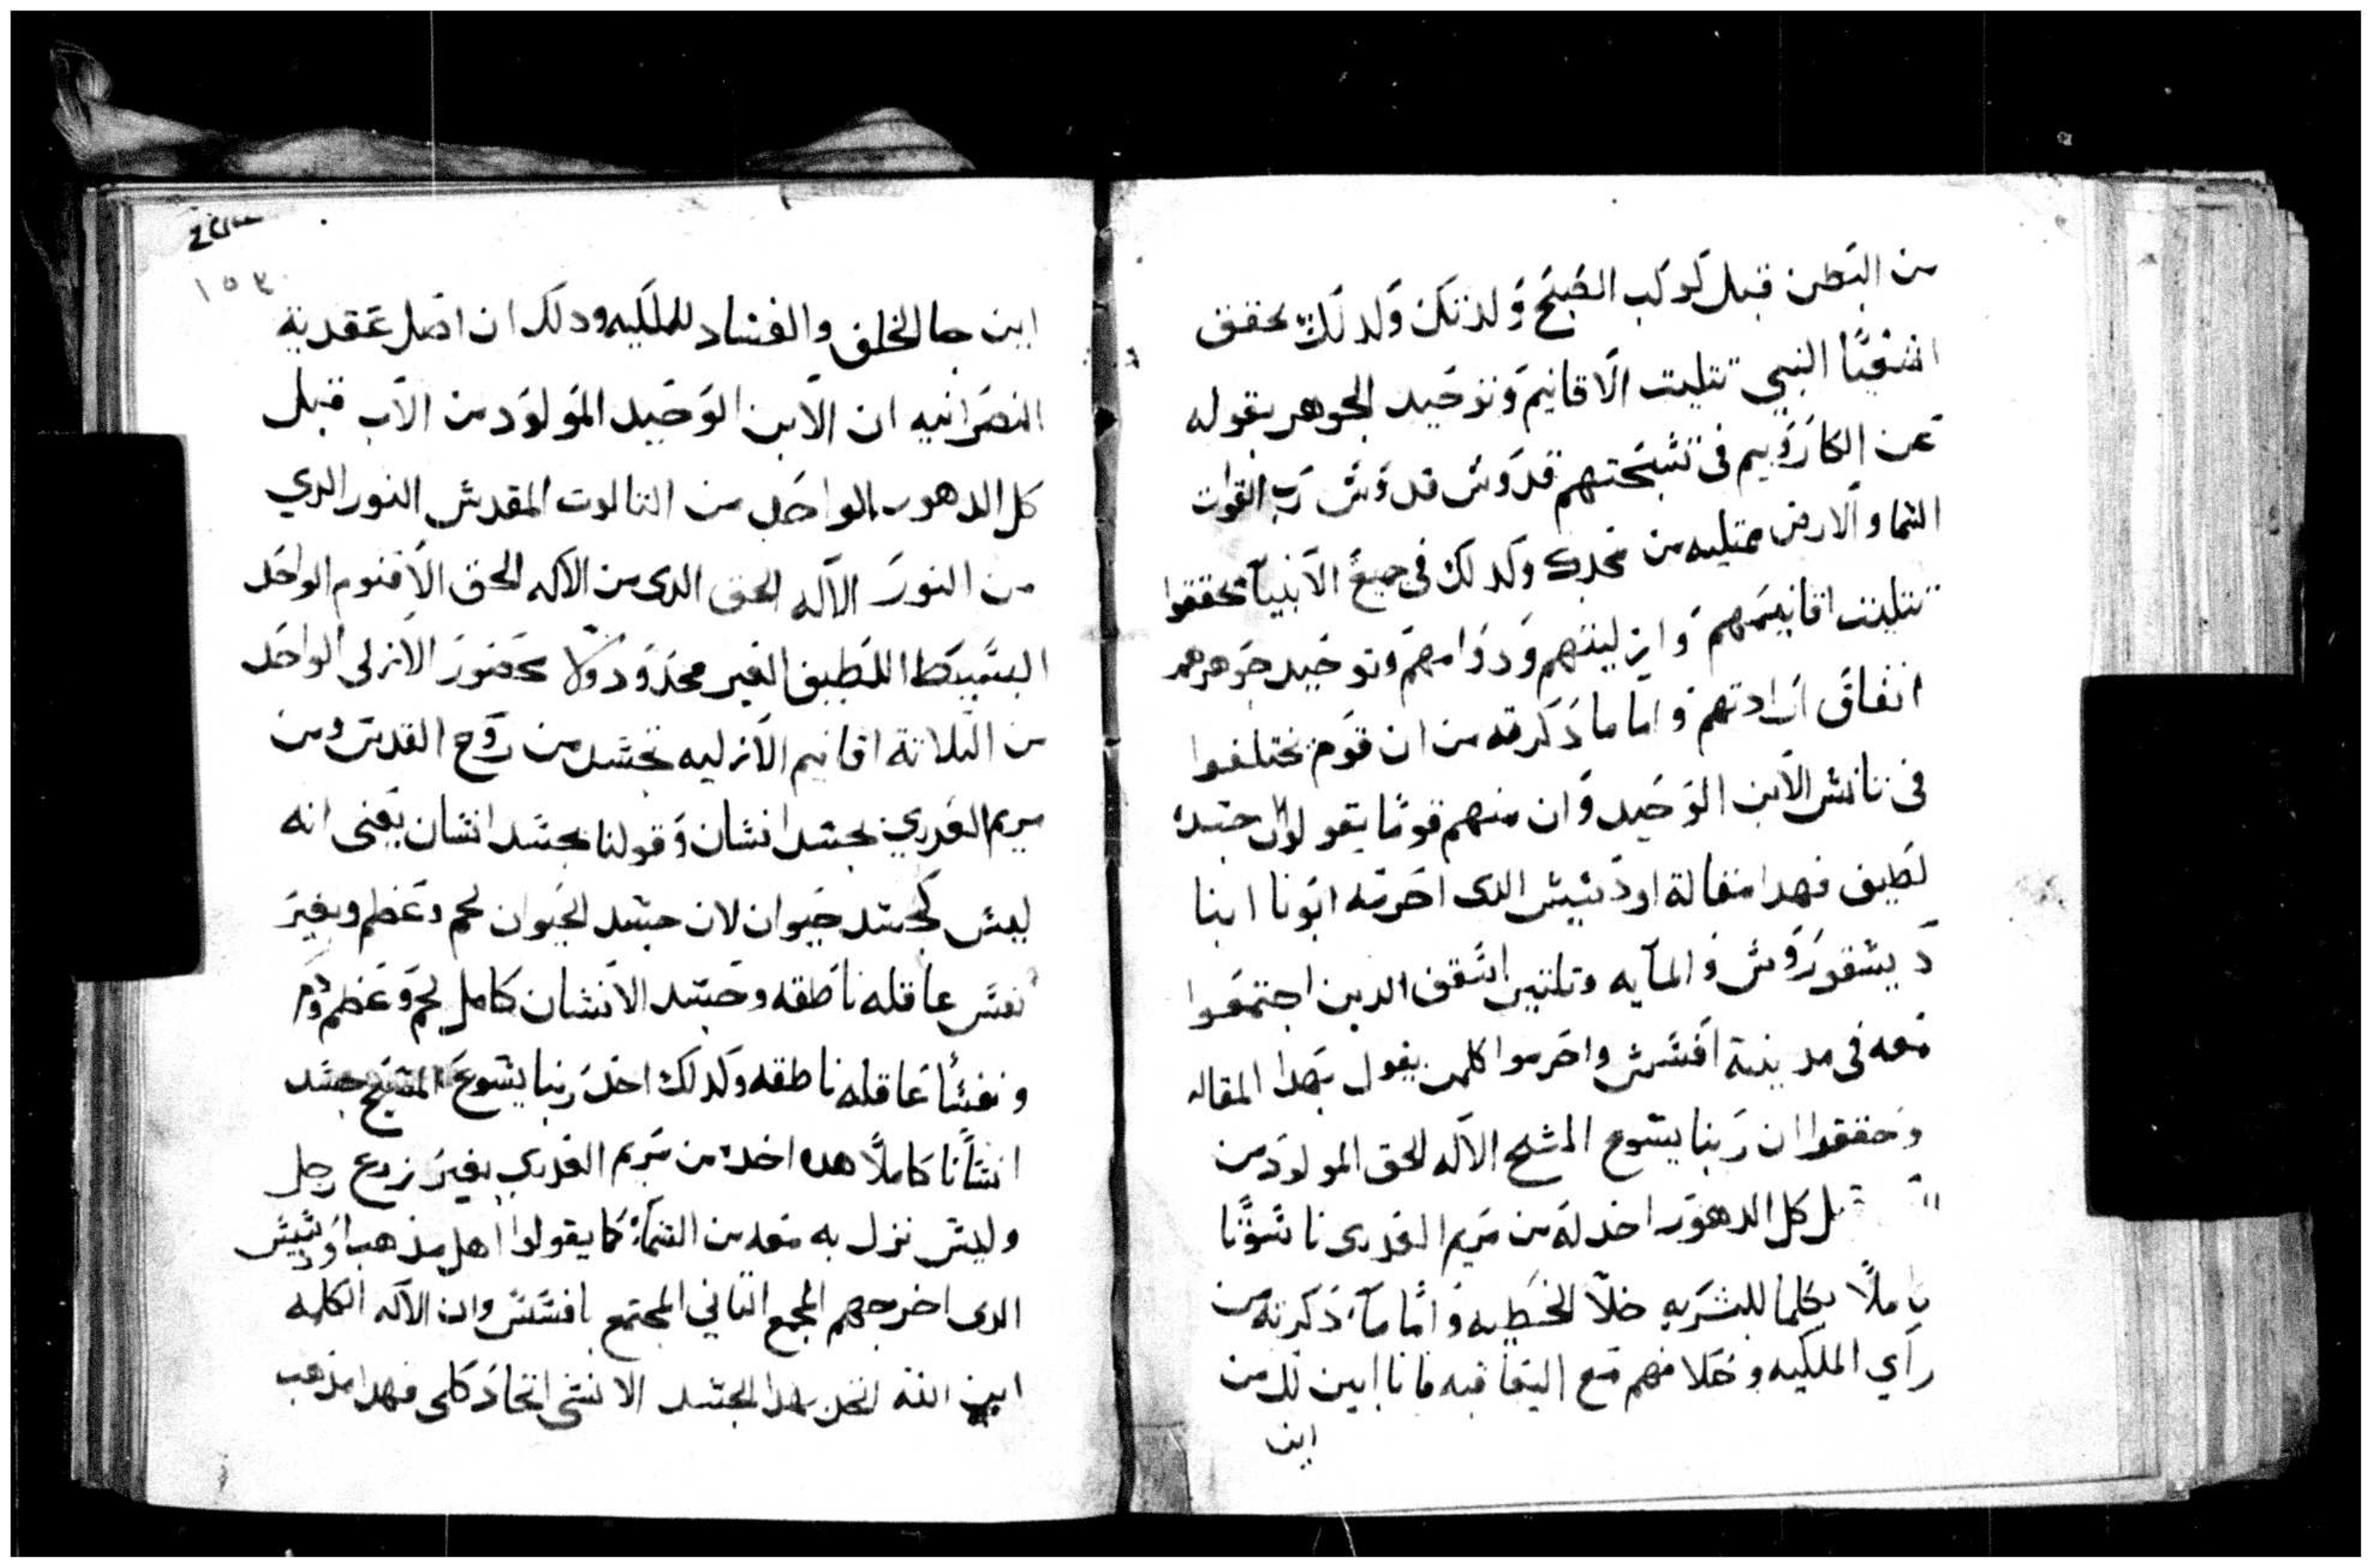 من البطن قبل كوكب الصبح ولدتك ولدلك يحقق
اشعيا النبي تتليت الاقانيم وتوحيد الجوهر بقوله
عن الكاروبيم في تسبحتهم قدوس قدوس رب القوات
السما والارض ممتليه من مجدك وكدلك في جميع الانبيا يحققوا
تتليت اقانيمهم وازليتهم ودوامهم وتوحيد جوهرهم
اتفاق ارادتهم واما ما ذكرته من ان قوم يختلفوا
في تانس الابن الوحيد وان منهم قوما يقولوا ان جسده
لطيف فهدا مقالة الدى احرمه ابونا انبا
ديسقوروس والمايه وتلتين اسقف الدين اجتمعوا
معه في مدينة افسس واحرموا كلمن يقول بهدا المقاله
وحققوا ان ربنا يسوع المسيح الاله الحق المولود من
كل الدهور اخد له من مريم العدرى ناسوتا
كاملا بكلما للبشريه خلا الخطيه واما ما ذكرته من
راي الملكيه وخلافهم مع اليعاقبه فانا ابين لك من
اين
١٥٣
اين جا الخلف والفساد للملكيه ودلك ان اصل عقدية
النصرانيه ان الابن الوحيد المولود من الاب قبل
كل الدهور الواحد من التالوت المقدس النور الدي
من النور الاله الحق الدى من الاله الحق الاقنوم الواحد
البسيط اللطيف الغير محدود ولا محصور الازلى الواحد
من التلاتة اقانيم الازليه تجسد من روح القدس ومن
مريم العدري بجسد انسان وقولنا بجسد انسان يعنى انه
ليس كجسد حيوان لان جسد الحيوان لحم وعظم وبغير
نفس عاقله ناطقه وجسد الانسان كامل لحم وعظم ودم
ونفسا عاقله ناطقه وكدلك اخد ربنا يسوع المسيح جسد
انسانا كاملا هدا اخده من مريم العدري بغير زرع رجل
وليس نزل به معه من السما كما يقولوا اهل مذهب
الدى اخرجهم المجمع التاني المجتمع بافسس وان الاله الكلمه
ابن الله اتحد بهدا الجسد الانسى اتحاد كلى فهدا مذهب